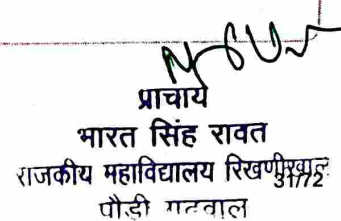 प्राचार्य
भारत सिंह रावत
राजकीय महाविद्यालय रिखणीखाल
31/72
पौड़ी गढवाल